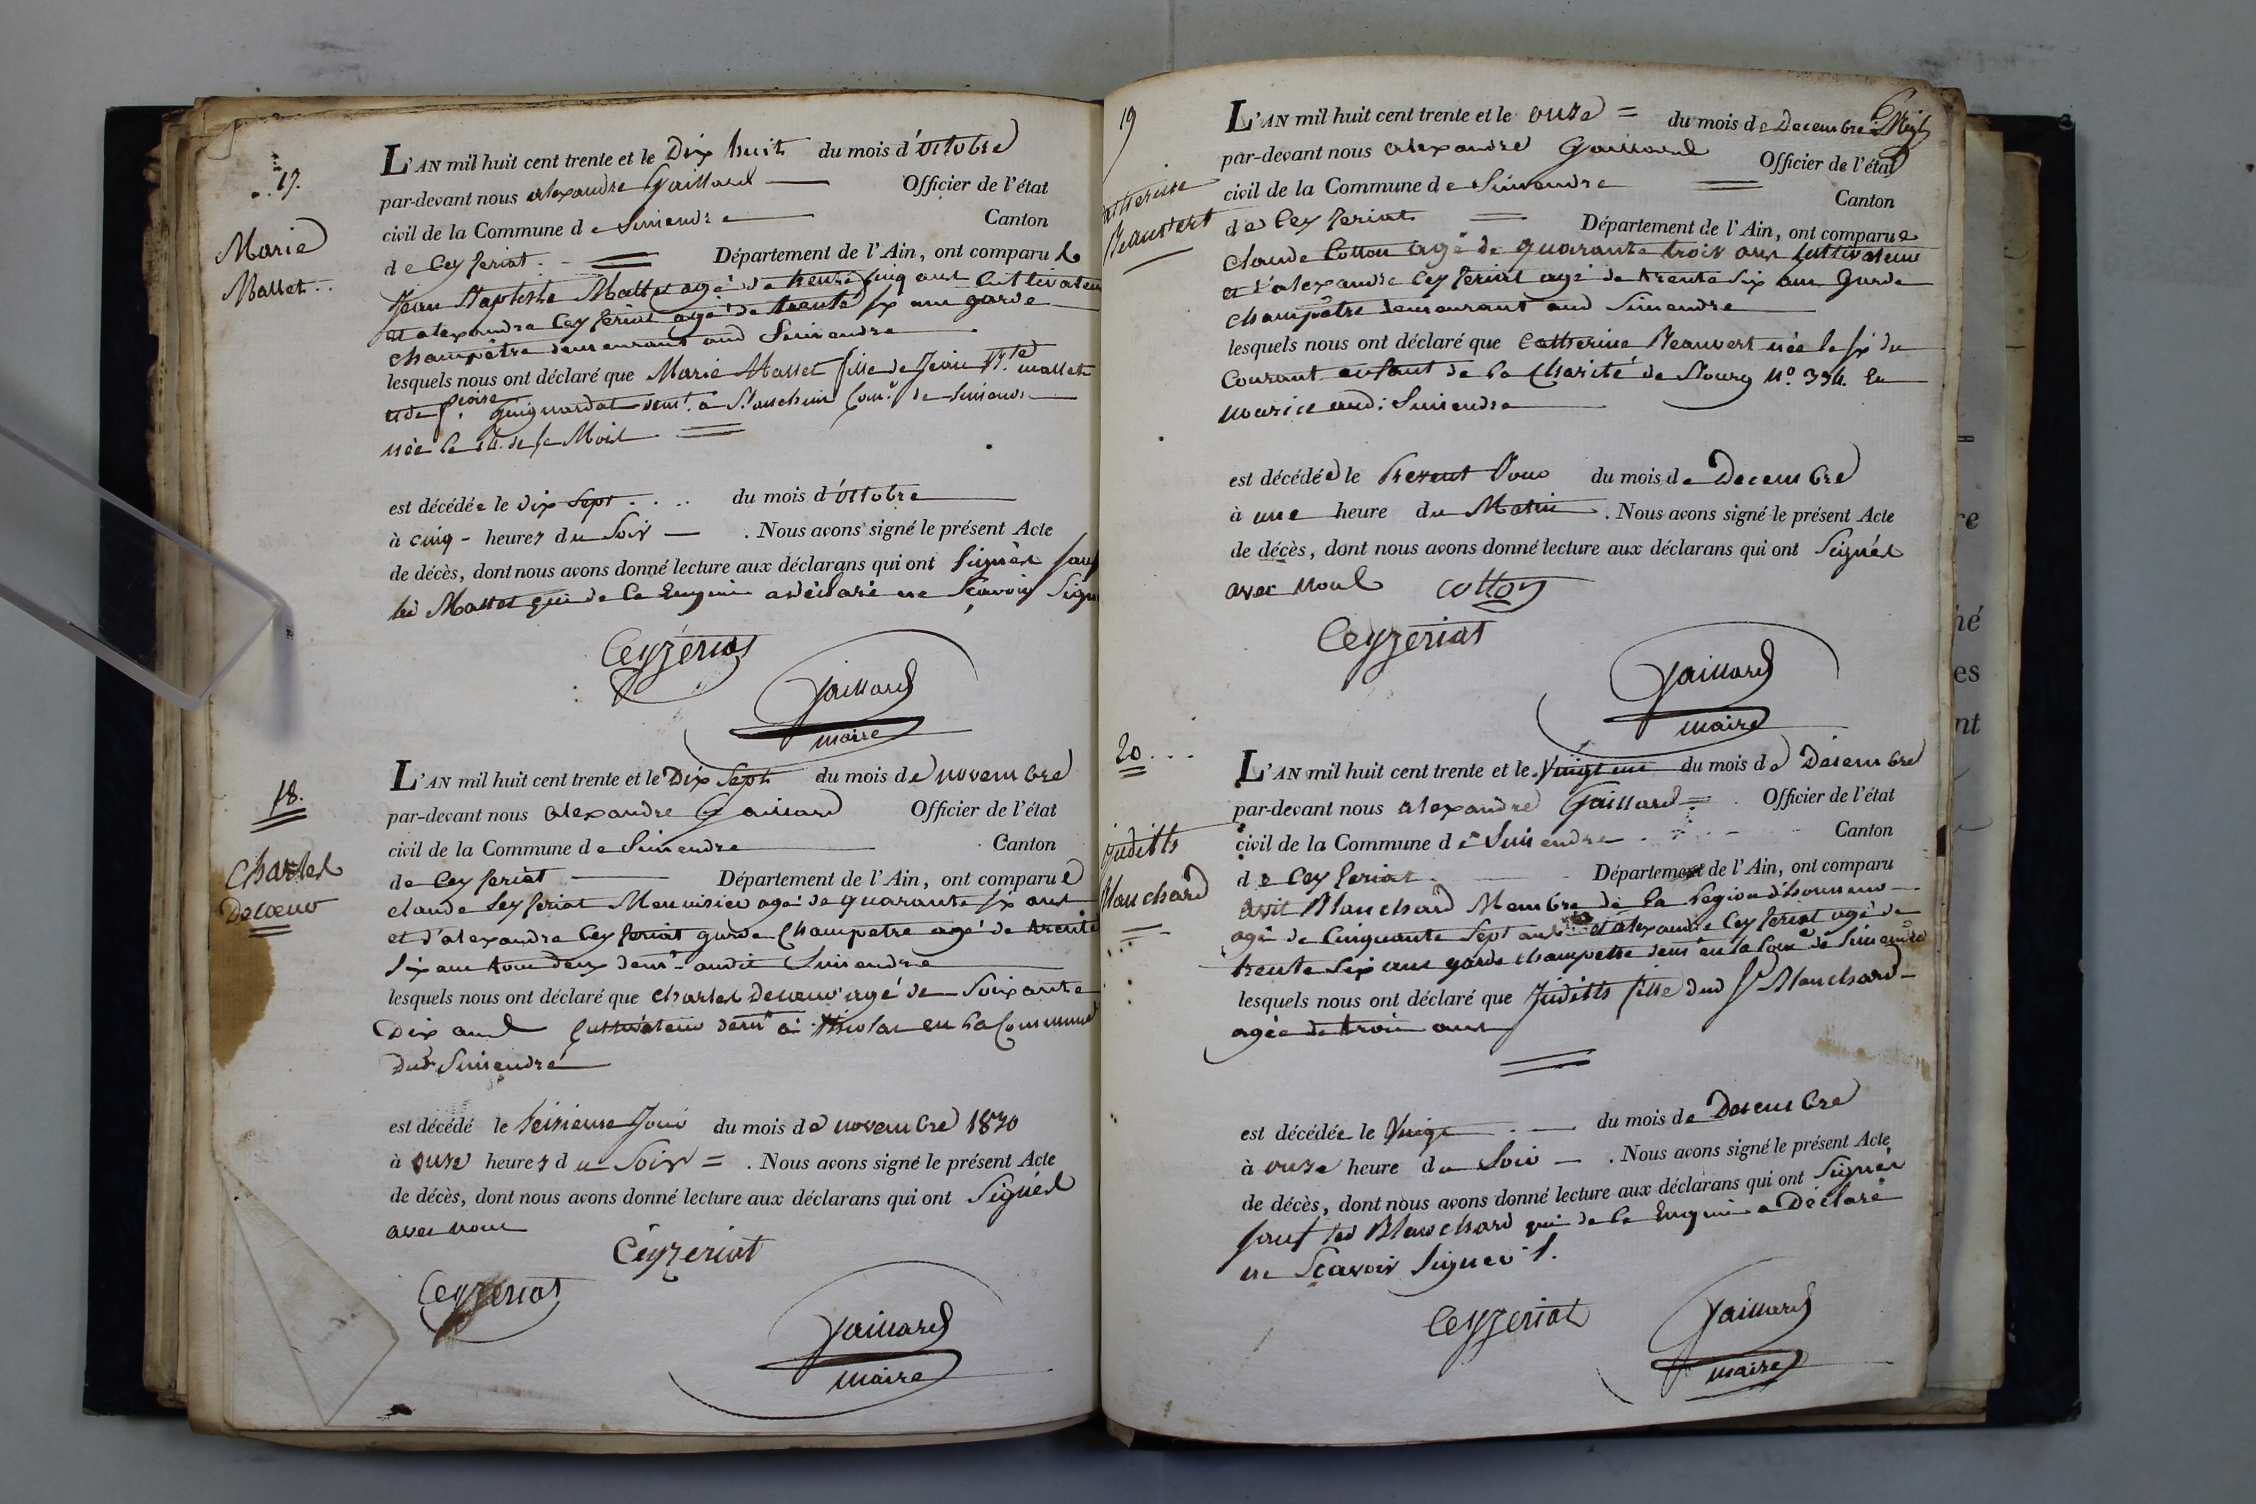 17.
Marie
Mallet
L'AN mil huit cent trente et le Dix huit du mois d'octobre
par-devant nous alexandre Gaillard Officier de l'état
civil de la Commune de Simandre Canton
de Ceyseriat Département de l'Ain, ont comparu
Jean Baptiste Mallet agé de trente cinq ans Cultivateur
et alexandre Ceyseriat agé de trente six ans garde
champêtre demeurant aud Simandre
lesquels nous ont déclaré que Marie Mallet fille de Jean Bte mallet
et de fçoise Guignardat demt. a Com. de Simandre
née le 14. de ce Mois
est décédée le dix sept du mois d'octobre
à cinq heures du Soir . Nous avons signé le présent Acte
de décès, dont nous avons donné lecture aux déclarans qui ont Signés sauf
led Mallet qui de ce Enquis a déclaré ne Scavoir Signe
Ceyzériat
Gaillard
maire
18.
Charles
Decoeur
L'AN mil huit cent trente et le Dix Sept du mois de novembre
par-devant nous alexandre Gaillard Officier de l'état
civil de la Commune de Simandre Canton
de Ceyseriat Département de l'Ain, ont comparu
claude Ceyseriat Menuisier agé de quarante six ans
et d'alexandre Ceyseriat garde Champetre agé de trente
six ans tous deux demt. audit Simandre
lesquels nous ont déclaré que Charles Decoeur agé de Soixante
Dix ans Cultivateur demt à en la Commune
dud Simandre
est décédé le Seizieme Jour du mois de novembre 1830
à onze heures du Soir = . Nous avons signé le présent Acte
de décès, dont nous avons donné lecture aux déclarans qui ont Signés
avec nous
Ceyzeriat
Ceyzériat
Gaillard
maire
19
Catherine
Beauvert
L'AN mil huit cent trente et le onze = du mois de Decembre
par-devant nous alexandre Gaillard Officier de l'état
civil de la Commune de Simandre Canton
de Ceyseriat Département de l'Ain, ont comparu
claude Cotton agé de quarante trois ans Cultivateur
et d'alexandre Ceyseriat agé de trente six ans Garde
champêtre demeurant aud Simandre
lesquels nous ont déclaré que Catherine Beauvert née le six du
Courant enfant de la Charité de Bourg No. 334. En
nourice aud: Simandre
est décédée le Present Jour du mois de Decembre
à une heure du Matin . Nous avons signé le présent Acte
de décès, dont nous avons donné lecture aux déclarans qui ont Seignés
avec nous cotton
Ceyzeriat
Gaillard
maire
20
Judith
Blanchard
L'AN mil huit cent trente et le Vingt un du mois de Decembre
par-devant nous alexandre Gaillard Officier de l'état
civil de la Commune de Simandre Canton
de Ceyseriat Département de l'Ain, ont comparu
Blanchard Membre de la Legion d'honneur
agé de Cinquante Sept ans et alexandre Ceyseriat agé de
trente Six ans garde champetre demt en la Come de Simandre
lesquels nous ont déclaré que Judith fille dud Sr Blanchard
agée de trois ans
est décédée le Vingt du mois de Decembre
à onze heure du Soir . Nous avons signé le présent Acte
de décès, dont nous avons donné lecture aux déclarans qui ont Signés
sauf led Blanchard qui de ce Enquis a Déclaré
ne Scavoir Signer
Ceyzeriat
Gaillard
maire